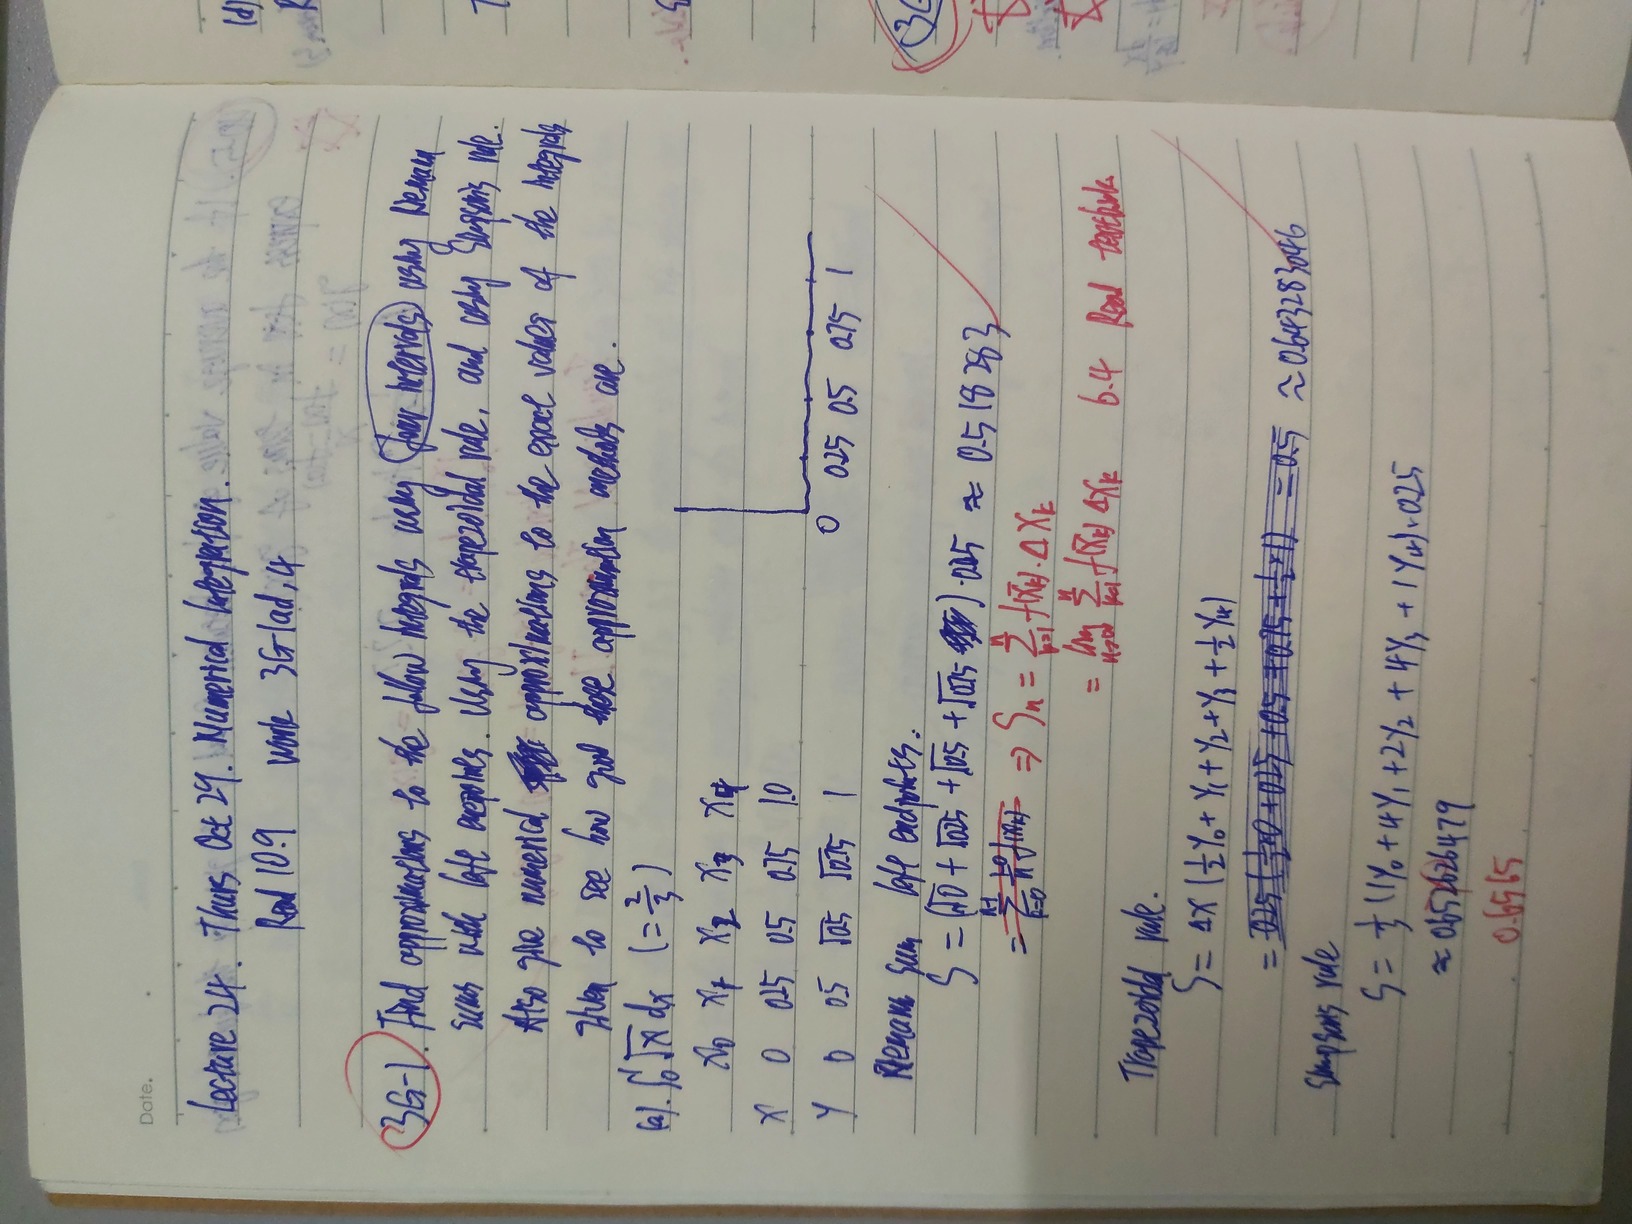 Date.
Lecture 24. Thurs Oct 29. Numerical Integration.
Read 10.9 work 3G 1ad, 4
3G-1. Find approximations to the follow integrals using four intervals using Riemann
sums with left enepoines. Using the trapezoidal rule, and using Simpson's rule.
Also give numerical approximations to the exact values of the integrals
given to see how good these approximation methods are.
(a). ∫₀¹ √x dx (= 2/3)
x₀ x₁ x₂ x₃ x₄
X 0 0.25 0.5 0.75 1.0
Y 0 0.5 √0.5 √0.75 1
0 0.25 0.5 0.75 1
Riemann sum left endpoints.
S = (√0 + √0.25 + √0.5 + √0.75) · 0.25 ≈ 0.518283
= Σ_{k=0}^{n-1} (1-0)/n f(x_k) ⇒ Sₙ = Σ_{k=1}^{n} f(x̄_k) · Δx_k
= lim_{n→∞} Σ_{k=1}^{n} f(x̄_k) Δx_k 6.4 Read textbook
Trapezoidal rule.
S = Δx (½y₀ + y₁ + y₂ + y₃ + ½y₄)
= 0.25 (½×0 + 0.25 + 0.5 + 0.75 + ½×1) = 0.5 ≈ 0.643283046
Simpsons rule
S = ⅓ (1y₀ + 4y₁ + 2y₂ + 4y₃ + 1y₄) · 0.25
≈ 0.652626479
0.6565
(d)